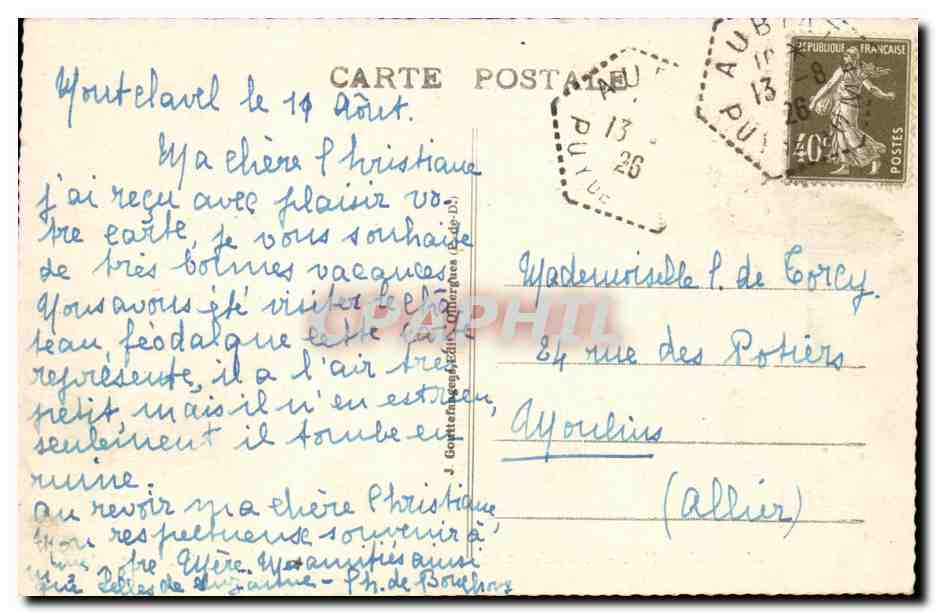 CARTE POSTALE
Montclavel le 11 Août.
Ma chère Christiane
j'ai reçu avec plaisir vo-
tre carte, je vous souhaite
de très bonnes vacances
Nous avons été visiter le châ-
teau, féodal que cette carte
représente, il a l'air très
petit, mais il n'en est rien,
seulement il tombe en
ruine.
au revoir ma chère Christiane,
respectueux souvenir à
Mère. Mes amitiés ainsi
que celles de Suzanne - Ph. de
J. Gouttefangeas, Edit., Olliergues (P.-de-D.)
AU
13
26
PUY DE
AUB
13 -8
26
PUY
REPUBLIQUE FRANÇAISE
40c
POSTES
Mademoiselle C. de Torcy.
24 rue des Potiers
Moulins
(Allier)
CPAPHIL